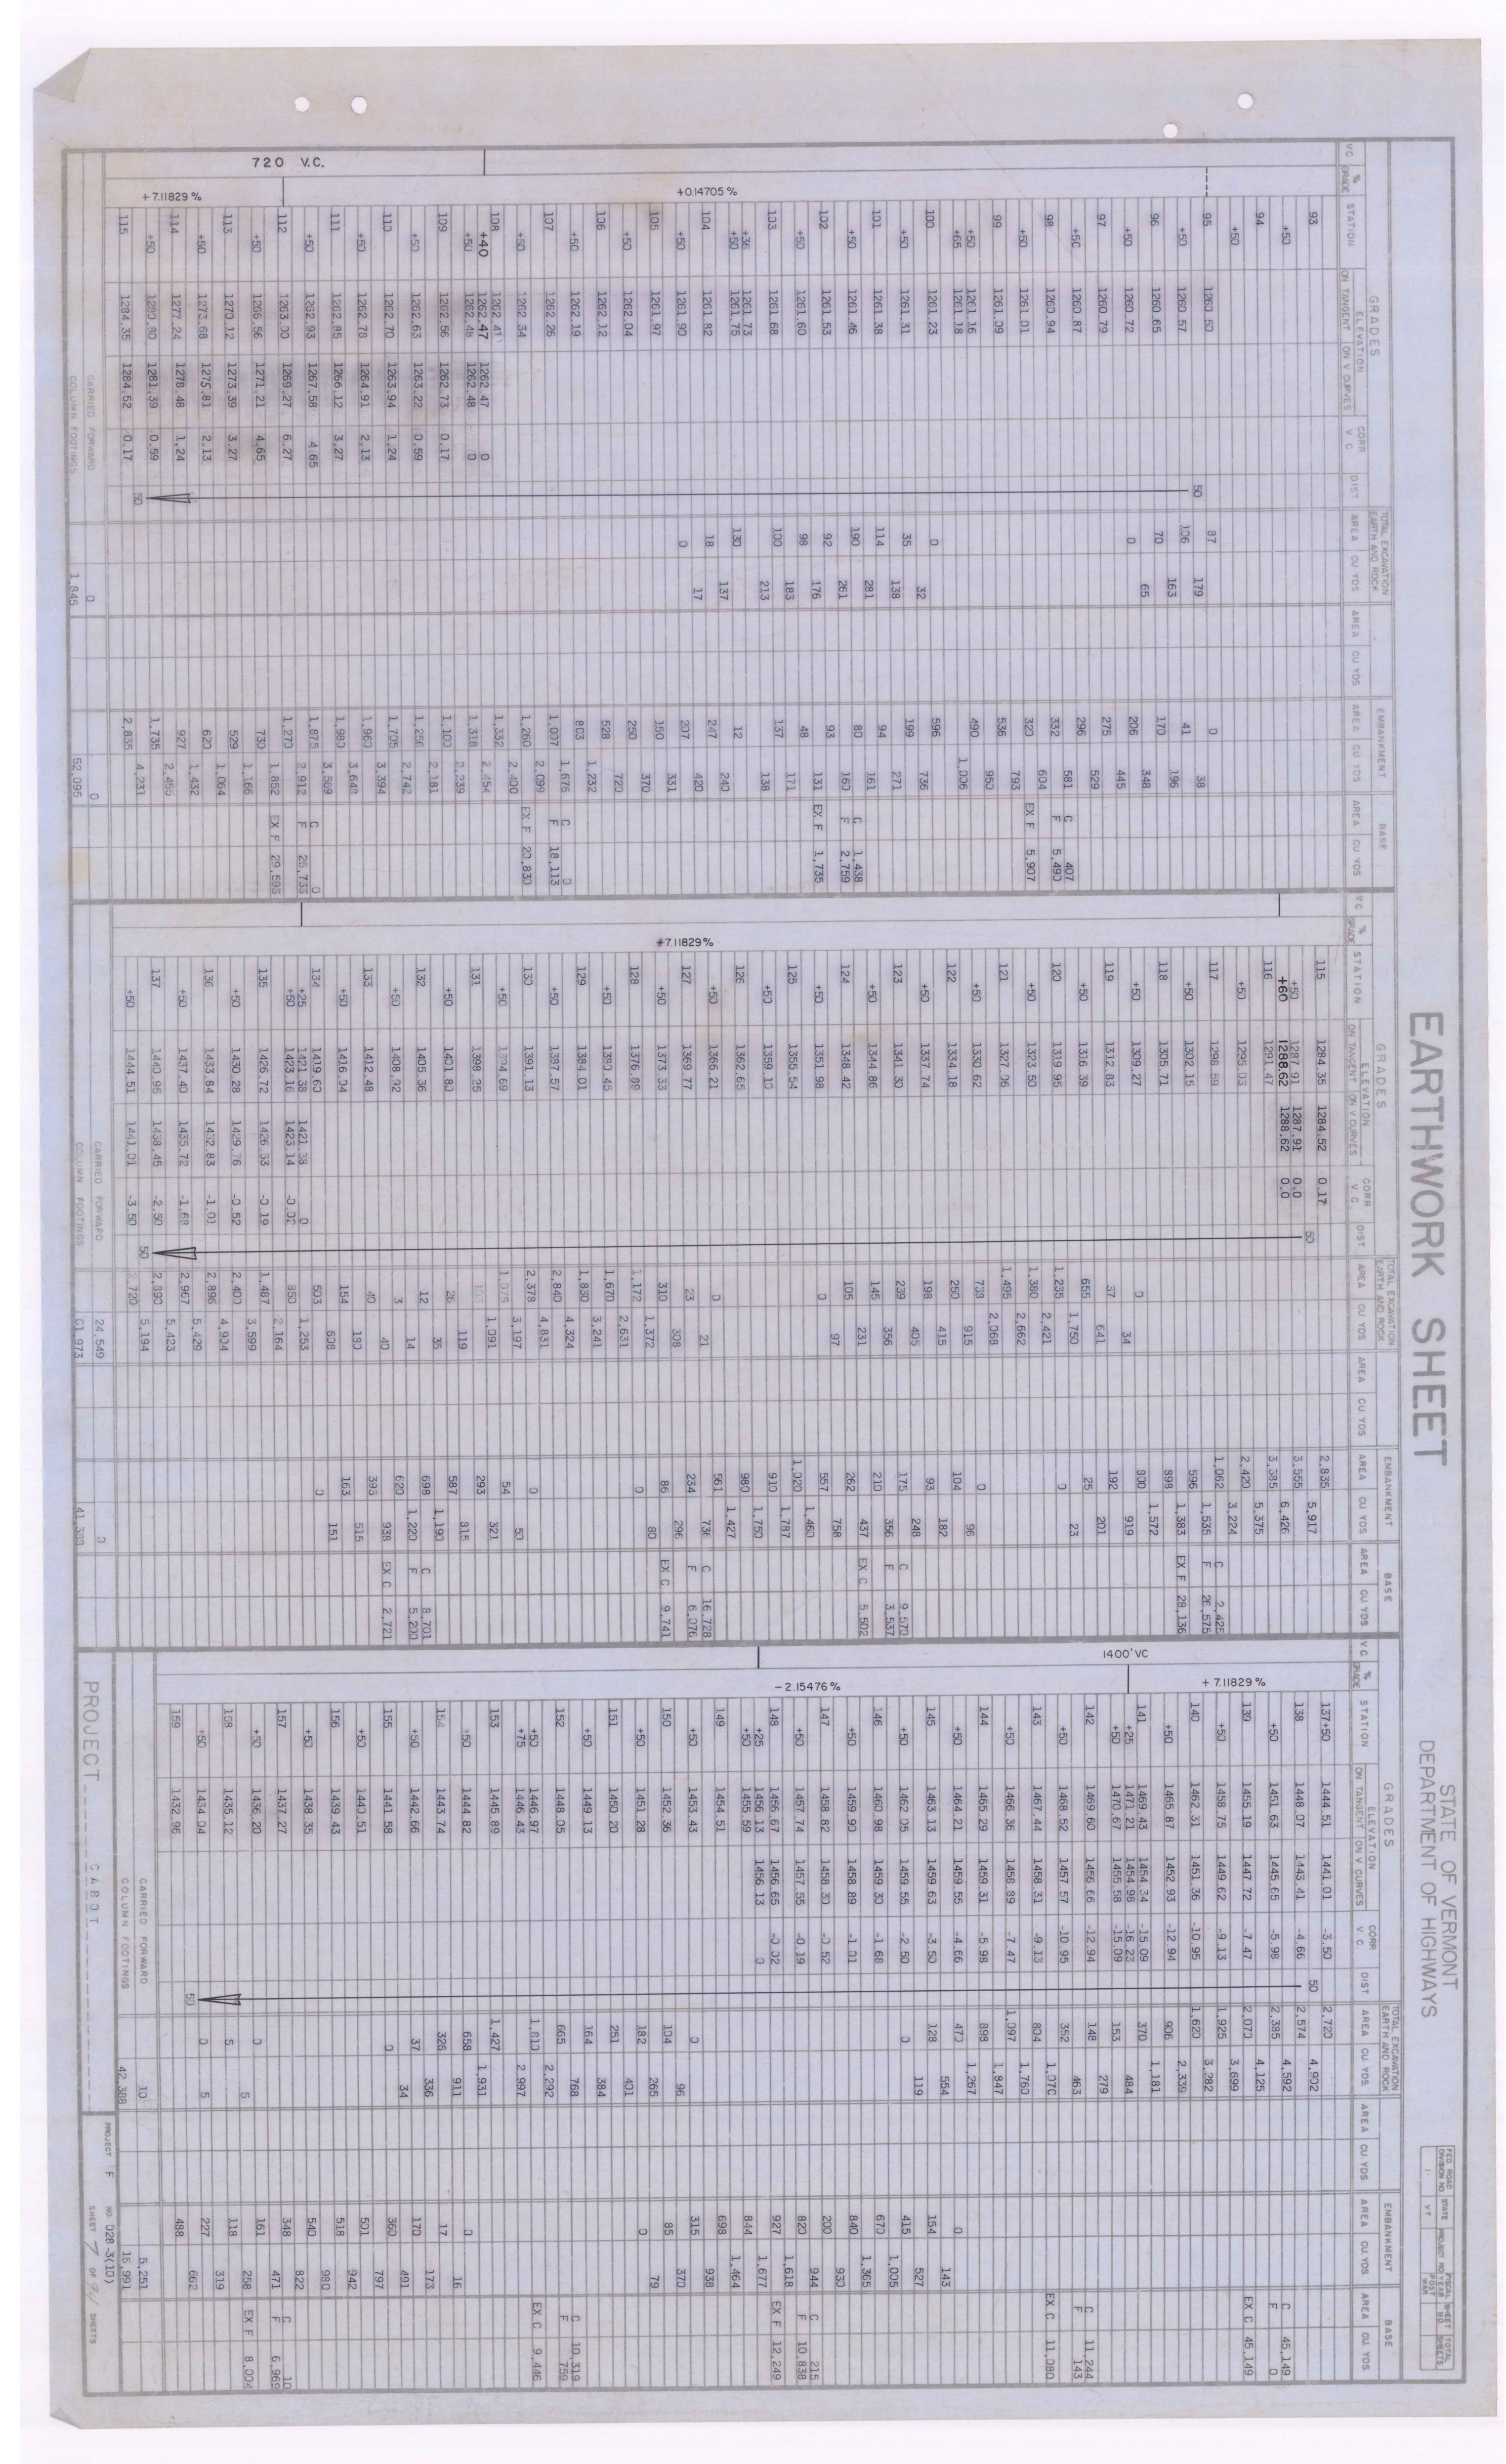 EARTHWORK SHEET
STATE OF VERMONT
DEPARTMENT OF HIGHWAYS
FED ROAD DIVISION NO. STATE PROJECT NO FISCAL YEAR SHEET NO. TOTAL SHEETS
1 VT POST WAR
GRADES TOTAL EXCAVATION EARTH AND ROCK EMBANKMENT BASE
VC % GRADE STATION ELEVATION ON TANGENT ON V CURVES CORR V C DIST AREA CU YDS AREA CU YDS AREA CU YDS AREA CU YDS
93
+50
94
+50
95 1260.50 87 0
50 179 38
+50 1260.57 106 41
163 196
96 1260.65 70 170
65 348
+50 1260.72 0 206
445
97 1260.79 275
529
+50 1260.87 296
581 C 407
98 1260.94 332 F 5,490
604
+50 1261.01 320 EX F 5,907
793
99 1261.09 536
950
+50 1261.16 490
+65 1261.18 1,006
100 1261.23 0 596
32 736
+50 1261.31 35 199
138 271
101 1261.38 114 94
281 161
+50 1261.46 190 80 C 1,438
261 160 F 2,759
102 1261.53 92 93
176 131 EX F 1,735
+50 1261.60 98 48
183 171
103 1261.68 100 137
213 138
+36 1261.73
+50 1261.75 130 12
137 240
104 1261.82 18 247
17 420
+50 1261.90 0 207
331
105 1261.97 150
370
+50 1262.04 250
720
106 1262.12 528
1,232
+50 1262.19 803
1,676 C 0
107 1262.26 1,007 F 18,113
2,099
+50 1262.34 1,260 EX F 20,830
2,400
108 1262.41 1,332
+40 1262.47 1262.47 0
2,454
+50 1262.48 1262.48 0 1,318
2,239
109 1262.56 1262.73 0.17 1,100
2,181
+50 1262.63 1263.22 0.59 1,256
2,742
110 1262.70 1263.94 1.24 1,705
3,394
+50 1262.78 1264.91 2.13 1,960
3,648
111 1262.85 1266.12 3.27 1,980
3,569
+50 1262.93 1267.58 4.65 1,875 C 0
2,912 F 25,733
112 1263.00 1269.27 6.27 1,270
1,852 EX F 29,593
+50 1266.56 1271.21 4.65 730
1,166
113 1270.12 1273.39 3.27 529
1,064
+50 1273.68 1275.81 2.13 620
1,432
114 1277.24 1278.48 1.24 927
2,465
+50 1280.80 1281.39 0.59 1,735
50 4,231
115 1284.35 1284.52 0.17 2,835
720 V.C.
+0.14705 %
+7.11829 %
CARRIED FORWARD 0 0
COLUMN FOOTINGS 1,845 52,095
GRADES TOTAL EXCAVATION EARTH AND ROCK EMBANKMENT BASE
VC % GRADE STATION ELEVATION ON TANGENT ON V CURVES CORR V C DIST AREA CU YDS AREA CU YDS AREA CU YDS AREA CU YDS
115 1284.35 1284.52 0.17 2,835
50 5,917
+50 1287.91 1287.91 0.0 3,555
+60 1288.62 1288.62 0.0 6,426
116 1291.47 3,385
5,375
+50 1295.03 2,420
3,224
117 1298.59 1,062 C 2,425
1,535 F 26,575
+50 1302.15 596
1,383 EX F 28,136
118 1305.71 898
1,572
+50 1309.27 0 800
34 919
119 1312.83 37 192
641 201
+50 1316.39 655 25
1,750 23
120 1319.95 1,235 0
2,421
+50 1323.50 1,380
2,662
121 1327.06 1,495
2,068
+50 1330.62 738 0
915 96
122 1334.18 250 104
415 182
+50 1337.74 198 93
405 248
123 1341.30 239 175 C 9,570
356 356 F 3,537
+50 1344.86 145 210
231 437 EX C 5,502
124 1348.42 105 262
97 758
+50 1351.98 0 557
1,460
125 1355.54 1,020
1,787
+50 1359.10 910
1,750
126 1362.65 980
1,427
+50 1366.21 0 561 C 16,728
21 736 F 6,076
127 1369.77 23 234
308 296
+50 1373.33 310 86 EX C 9,741
1,372 80
128 1376.89 1,172 0
2,631
+50 1380.45 1,670
3,241
129 1384.01 1,830
4,324
+50 1387.57 2,840
4,831
130 1391.13 2,378 0
3,197 50
+50 1394.69 1,075 54
1,091 321
131 1398.25 103 293
119 815
+50 1401.80 26 587
35 1,190
132 1405.36 12 698 C 8,701
14 1,220 F 5,200
+50 1408.92 3 620
40 938 EX C 2,721
133 1412.48 40 393
180 515
+50 1416.04 154 163
608 151
134 1419.60 503 0
+25 1421.38 1421.38 0
1,253
+50 1423.16 1423.14 -0.02 850
2,164
135 1426.72 1426.53 -0.19 1,487
3,599
+50 1430.28 1429.76 -0.52 2,400
4,904
136 1433.84 1432.83 -1.01 2,896
5,429
+50 1437.40 1435.72 -1.68 2,967
5,423
137 1440.95 1438.45 -2.50 2,890
50 5,194
+50 1444.51 1441.01 -3.50 2,720
+7.11829 %
CARRIED FORWARD 24,549 0
COLUMN FOOTINGS 61,973 41,388
GRADES TOTAL EXCAVATION EARTH AND ROCK EMBANKMENT BASE
VC % GRADE STATION ELEVATION ON TANGENT ON V CURVES CORR V C DIST AREA CU YDS AREA CU YDS AREA CU YDS AREA CU YDS
137+50 1444.51 1441.01 -3.50 2,720
50 4,902
138 1448.07 1443.41 -4.66 2,574
4,592 C 45,149
+50 1451.63 1445.65 -5.98 2,385 F 0
4,125
139 1455.19 1447.72 -7.47 2,070 EX C 45,149
3,699
+50 1458.75 1449.62 -9.13 1,925
3,282
140 1462.31 1451.36 -10.95 1,620
2,339
+50 1465.87 1452.93 -12.94 906
1,181
141 1469.43 1454.34 -15.09 370
+25 1471.21 1454.98 -16.23
484
+50 1470.67 1455.58 -15.09 153
279
142 1469.60 1456.66 -12.94 148 C 11,244
463 F 143
+50 1468.52 1457.57 -10.95 352
1,070 EX C 11,080
143 1467.44 1458.31 -9.13 804
1,760
+50 1466.36 1458.89 -7.47 1,097
1,847
144 1465.29 1459.31 -5.98 898
1,267
+50 1464.21 1459.55 -4.66 470 0
554 143
145 1463.13 1459.63 -3.50 128 154
119 527
+50 1462.05 1459.55 -2.50 0 415
1,005
146 1460.98 1459.30 -1.68 670
1,365
+50 1459.90 1458.89 -1.01 840
930
147 1458.82 1458.30 -0.52 200
944 C 215
+50 1457.74 1457.55 -0.19 820 F 10,838
1,618
148 1456.67 1456.65 -0.02 927 EX F 12,249
+25 1456.13 1456.13 0
1,677
+50 1455.59 844
1,464
149 1454.51 698
938
+50 1453.43 0 315
96 370
150 1452.36 104 85
265 79
+50 1451.28 182 0
401
151 1450.20 251
384
+50 1449.13 164
768 C 10,319
152 1448.05 665 F 759
2,292
+50 1446.97 1,810 EX C 9,446
+75 1446.43
2,997
153 1445.89 1,427
1,931
+50 1444.82 658 0
911 16
154 1443.74 326 17
336 173
+50 1442.66 37 170
34 491
155 1441.58 0 360
797
+50 1440.51 501
942
156 1439.43 518
980
+50 1438.35 540
822 C 10
157 1437.27 348 F 6,969
471
+50 1436.20 0 161
5 258 EX F 8,004
158 1435.12 5 118
319
+50 1434.04 0 227
50 662
159 1432.96 488
1400' VC
+ 7.11829 %
- 2.15476 %
CARRIED FORWARD 10 5,251
COLUMN FOOTINGS 42,388
PROJECT CABOT
PROJECT F NO 028-3(10)
SHEET 7 OF SHEETS